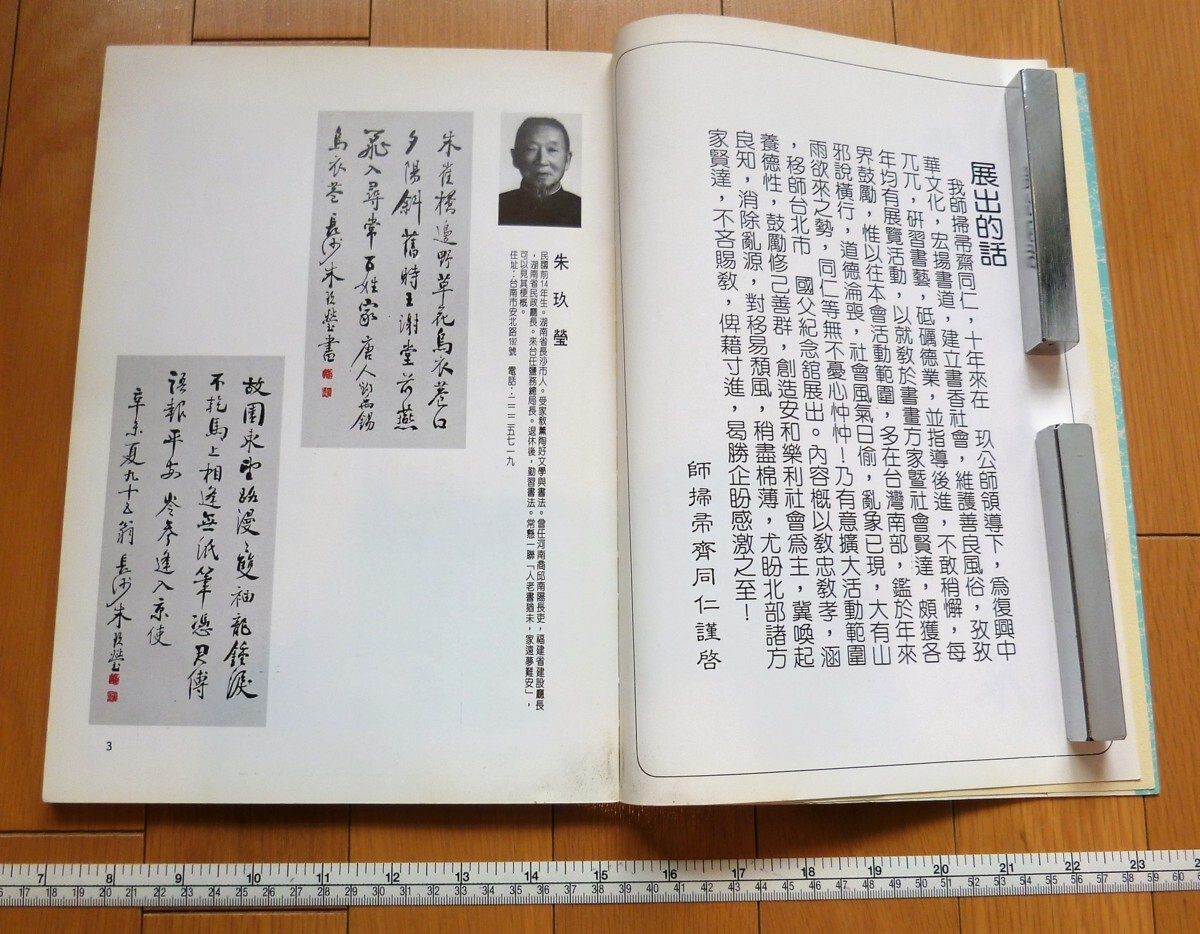 展出的話
我師掃帚齋同仁，十年來在　玖公師領導下，爲復興中
華文化，宏揚書道，建立書香社會，維護善良風俗，孜孜
兀兀，研習書藝，砥礪德業，並指導後進，不敢稍懈，每
年均有展覽活動，以就敎於書畫方家暨社會賢達，頗獲各
界鼓勵，惟以往本會活動範圍，多在台灣南部，鑑於年來
邪說橫行，道德淪喪，社會風氣日偷，亂象已現，大有山
雨欲來之勢，同仁等無不憂心忡忡！乃有意擴大活動範圍
，移師台北市　國父紀念舘展出。內容概以敎忠敎孝，涵
養德性，鼓勵修己善群，創造安和樂利社會爲主，冀喚起
良知，消除亂源，對移易頹風，稍盡棉薄，尤盼北部諸方
家賢達，不吝賜敎，俾藉寸進，曷勝企盼感激之至！
師掃帚齋同仁謹啓
朱玖瑩
民國前14年生。湖南省長沙市人。受家敎薰陶好文學與書法。曾任河南商邱南陽長吏，福建省建設廳長
，湖南省民政廳長。來台任鹽務總局長。退休後，勤習書法。常懸一聯「人老書猶未，家遠夢難安」，
可以見其梗概。
住址：台南市安北路192號　電話：二二二五七一九
朱雀橋邊野草花烏衣巷口
夕陽斜舊時王謝堂前燕
飛入尋常百姓家唐人劉禹錫
烏衣巷 長沙朱玖瑩書
故園東望路漫漫雙袖龍鍾淚
不乾馬上相逢無紙筆憑君傳
語報平安 岑參逢入京使
辛未夏九十五翁長沙朱玖瑩
3
7 8 9 10 11 12 13 14 15 16 17 18 19 20 21 22 23
17 18 19 20 21 22 23 24 25 26 27 28 29 30 31 32 33 34 35 36 37 38 39 40 41 42 43 44 45 46 47 48 49 50 51 52 53 54 55 56 57 58 59 60